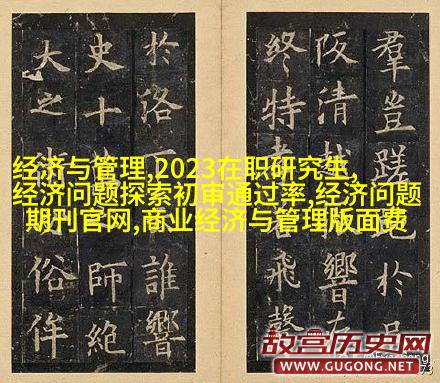 羣豈蹉於
阪清響
終特飛聲
於洛誰響
史十師絕
大之俗侔
经济与管理,2023在职研究生,
经济问题探索初审通过率,经济问题
期刊官网,商业经济与管理版面费
故宫历史网
WWW.GUGONG.NET